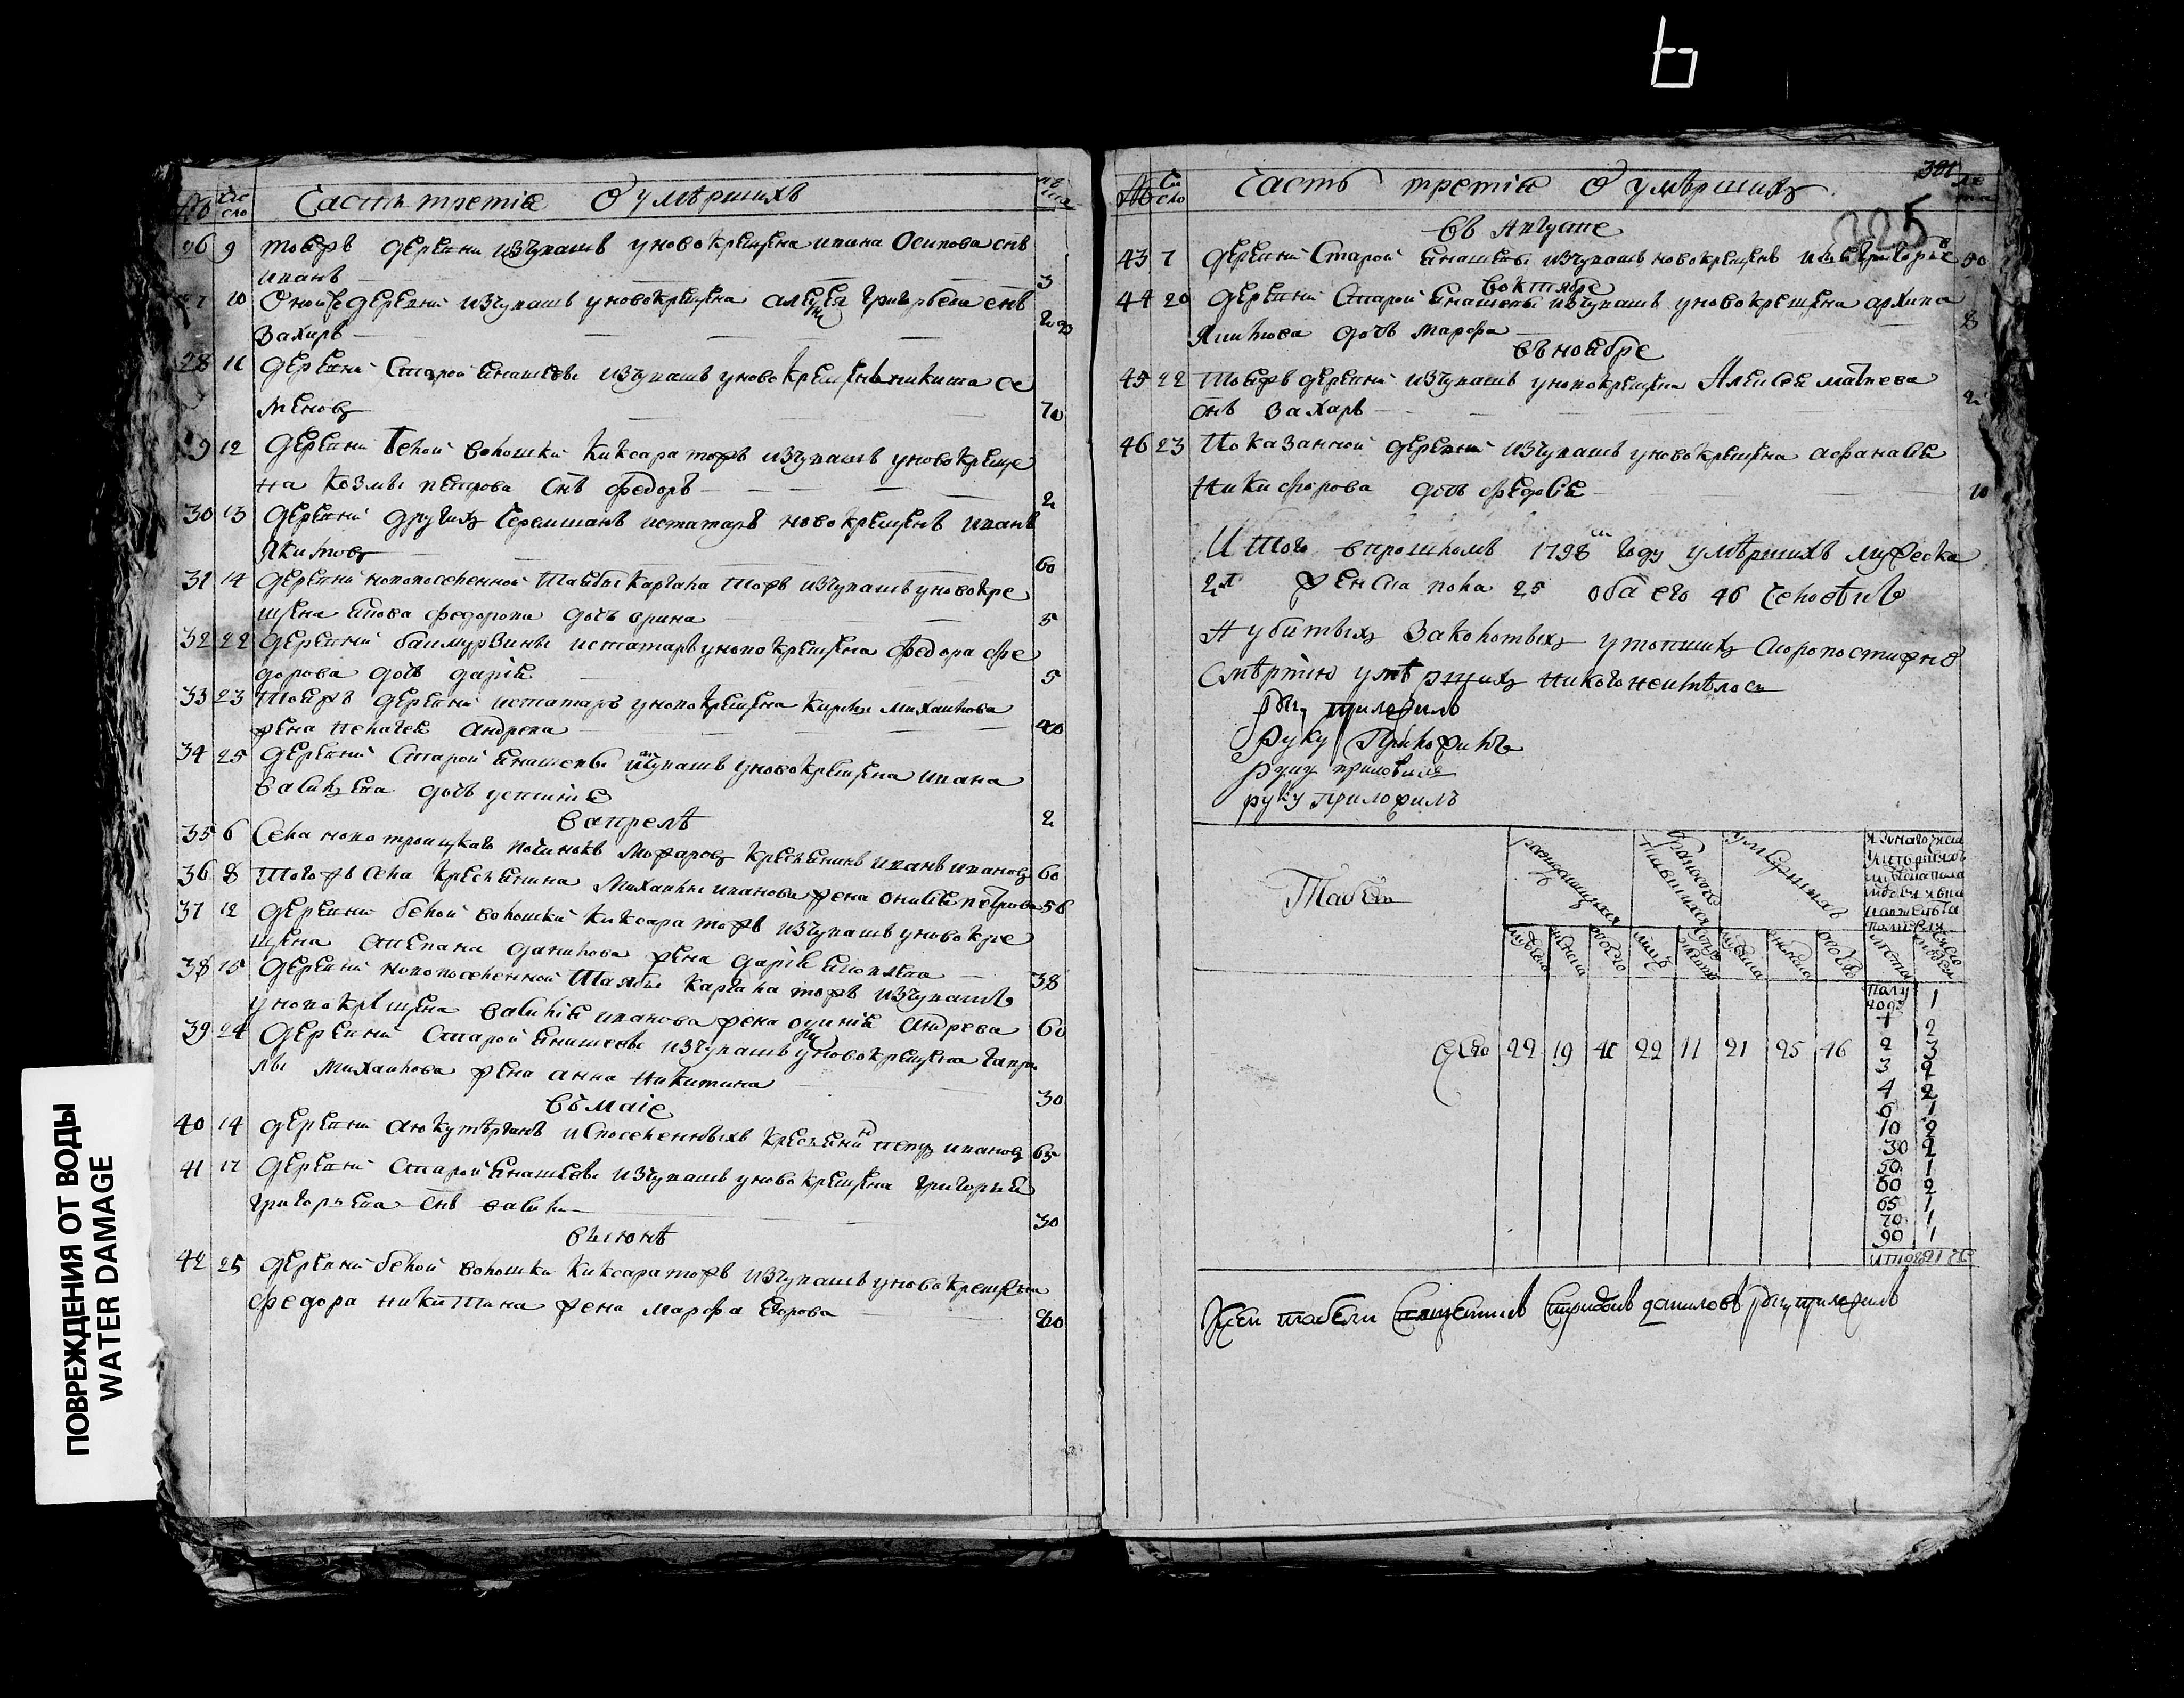 ПОВРЕЖДЕНИЯ ОТ ВОДЫ
WATER DAMAGE
№ Чи сло Часть третія О умѣршихъ лѣта
26 9 тояжъ деревни изчувашъ уновокрещена ивана Осипова снъ
иванъ 3
27 10 Оной деревни изчувашъ уновокрещена алексея григорьева снъ
Захаръ 2
28 11 деревни Старой Енашевы изчувашъ новокрещенъ никита се
меновъ 70
29 12 деревни белой воложки Киксара тожъ изчувашъ уновокреще
на Козмы петрова снъ федоръ 2
30 13 деревни других Черемшанъ истатаръ новокрещенъ иванъ
Якимовъ 60
31 14 деревни новопоселенной Шаябы каргала тожъ изчувашъ уновокре
щена федорова дочь ирина 5
32 22 деревни баимурзины истатаръ уновокрещена федора фе
дорова дочь дарія 5
33 23 тояжъ деревни истатаръ уновокрещена Кирилы михаилова
жена пелагея андреева 40
34 25 деревни Старой Енашевы изчувашъ уновокрещена ивана
васильева дочь устинія 2
в апрелѣ
35 6 Села новотроицкаго починокъ Мокаровъ крестьянинъ иванъ ивановъ 60
36 8 тогожъ села крестьянина Михаилы иванова жена петрова 56
37 12 деревни белой воложки Киксара тожъ изчувашъ уновокре
щена степана данилова жена дарія 38
38 15 деревни новопоселенной Шаябы Каргала тожъ изчувашъ
уновокрещена василія иванова жена андреева 60
39 24 деревни Старой Енашевы изчувашъ уновокрещена гаври
лы михаилова жена анна никитина 30
въ маіе
40 14 деревни испоселенныхъ крестьянинъ петръ ивановъ 65
41 17 деревни Старой Енашевы изчувашъ уновокрещена григорья
григорьева снъ василй 30
въ июнѣ
42 25 деревни белой воложки Киксара тожъ изчувашъ уновокрещена
федора никитина жена марфа Егорова 60
№ Чи сло Часть третія О умѣршихъ ле та
225
въ Августе
43 7 деревни Старой Енашевы изчувашъ новокрещенъ григорьевъ 50
воктябре
44 20 деревни Старой Енашевы изчувашъ уновокрещена архипа
Якимова дочь марфа 8
въ ноябре
45 22 тояжъ деревни изчувашъ уновокрещена Алексея матвеева
снъ Захаръ 2
46 23 Показанной деревни изчувашъ уновокрещена афанасья
Никифорова дочь федосія 10
Итого впрошломъ 1798 году умѣршихъ мужеска
21 женска пола 25 обаего 46 человѣкъ
Аубитыхъ Заколотыхъ утопшихъ скоропостижно
смѣртію умѣршихъ никого неимѣлось
руку приложилъ
руку Приложилъ
руку приложилъ
руку приложилъ
Табель
родившихся бракосочетавшихся умершихъ
мужеска женска обоего мужеска женска обоего лѣта число
число 22 19 41 22 11 21 25 46
полу годъ 1
1 2
2 3
3 2
4 2
6 1
10 2
30 2
50 1
60 2
65 1
70 1
90 1
итого 21
Ксей табели Священникъ Спиридонъ даниловъ руку приложилъ